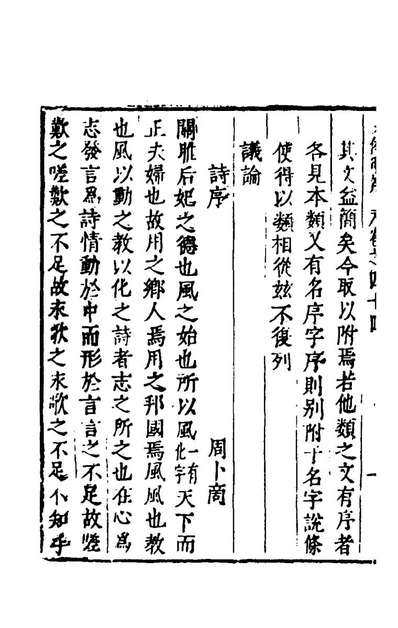 卷之四十四
其文益簡矣今取以附焉若他類之文有序者
各見本類又有名序字序則别附于名字說條
使得以類相從玆不復列
議論
詩序 周卜商
關雎后妃之德也風之始也所以風一有化字天下而
正夫婦也故用之鄉人焉用之邦國焉風風也教
也風以動之教以化之詩者志之所之也在心爲
志發言爲詩情動於中而形於言言之不足故嗟
歎之嗟歎之不足故永歌之永歌之不足不知手